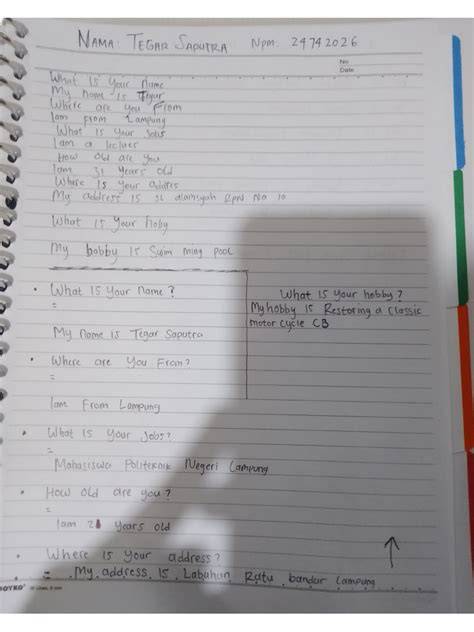 NAMA : TEGAR SAPUTRA Npm. 24742026
No
Date
What is your name
My name is Tegar
Where are you From
Iam From Lampung
What is your Jobs
Iam a lecluer
How old are you
Iam 31 years old
Where is your addres
My address is Jl alamsyah RPN No 10
What is your hoby
My bobby is Swim ming pool
• What is your name ?
=
My name is Tegar Saputra
• Where are you From?
=
Iam From Lampung
• What is your Jobs?
=
Mahasiswa Politeknik Negeri Lampung
• How old are you ?
=
Iam 21 years old
• Where is your address?
= My address is Labuhan Ratu bandar Lampung
What is your hobby ?
My hobby is Restoring a Classic
motor cycle CB